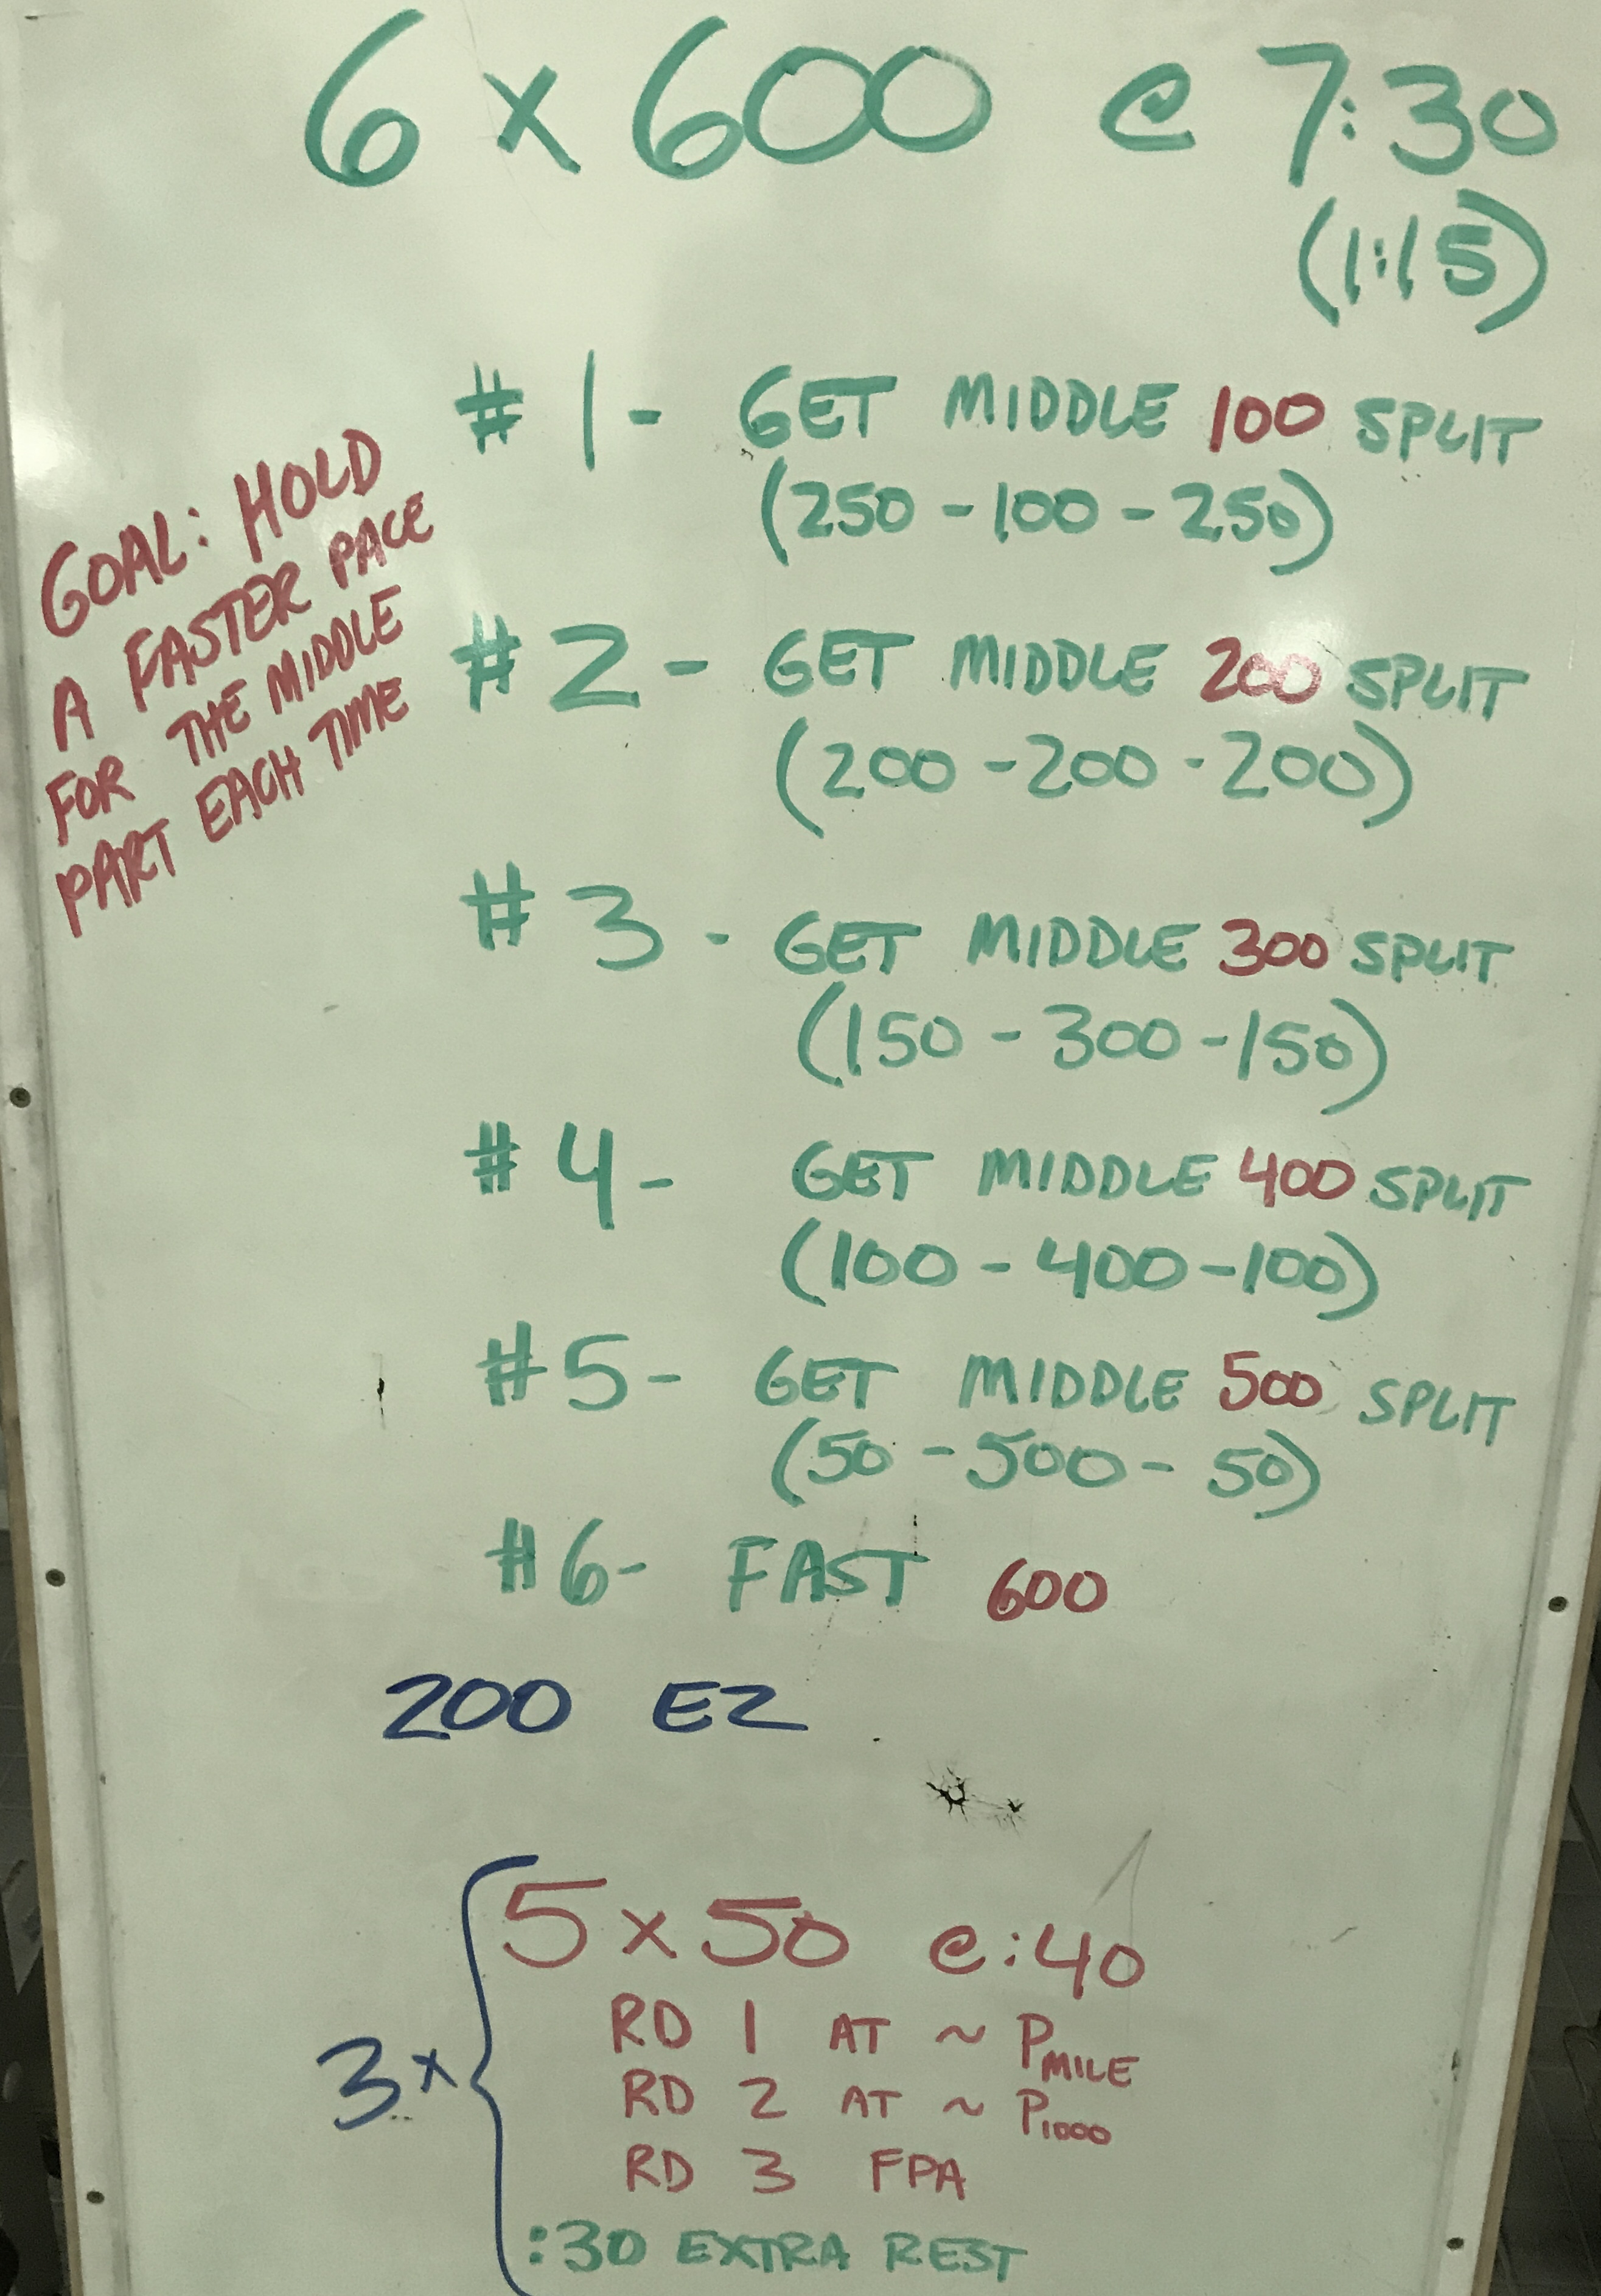 6 x 600 @ 7:30
(1:15)
#1 - GET MIDDLE 100 SPLIT
(250 - 100 - 250)
GOAL: HOLD
A FASTER PACE
FOR THE MIDDLE
PART EACH TIME
#2 - GET MIDDLE 200 SPLIT
(200 - 200 - 200)
#3 - GET MIDDLE 300 SPLIT
(150 - 300 - 150)
#4 - GET MIDDLE 400 SPLIT
(100 - 400 - 100)
#5 - GET MIDDLE 500 SPLIT
(50 - 500 - 50)
#6 - FAST 600
200 EZ
3x
5 x 50 @ :40
RD 1 AT ~ PMILE
RD 2 AT ~ P1000
RD 3 FPA
:30 EXTRA REST